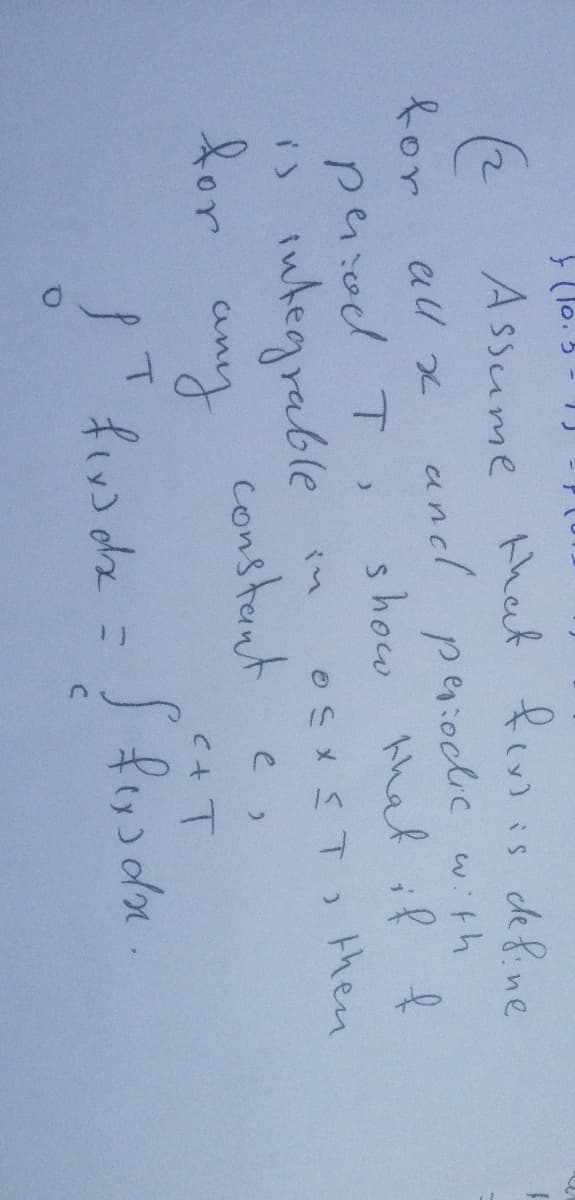 (2 Assume that f(x) is define
for all x and periodic with
period T, show that if f
is integrable in 0 ≤ x ≤ T, then
for any constant c,
∫₀ᵀ f(x) dx = ∫_c^{c+T} f(x) dx.